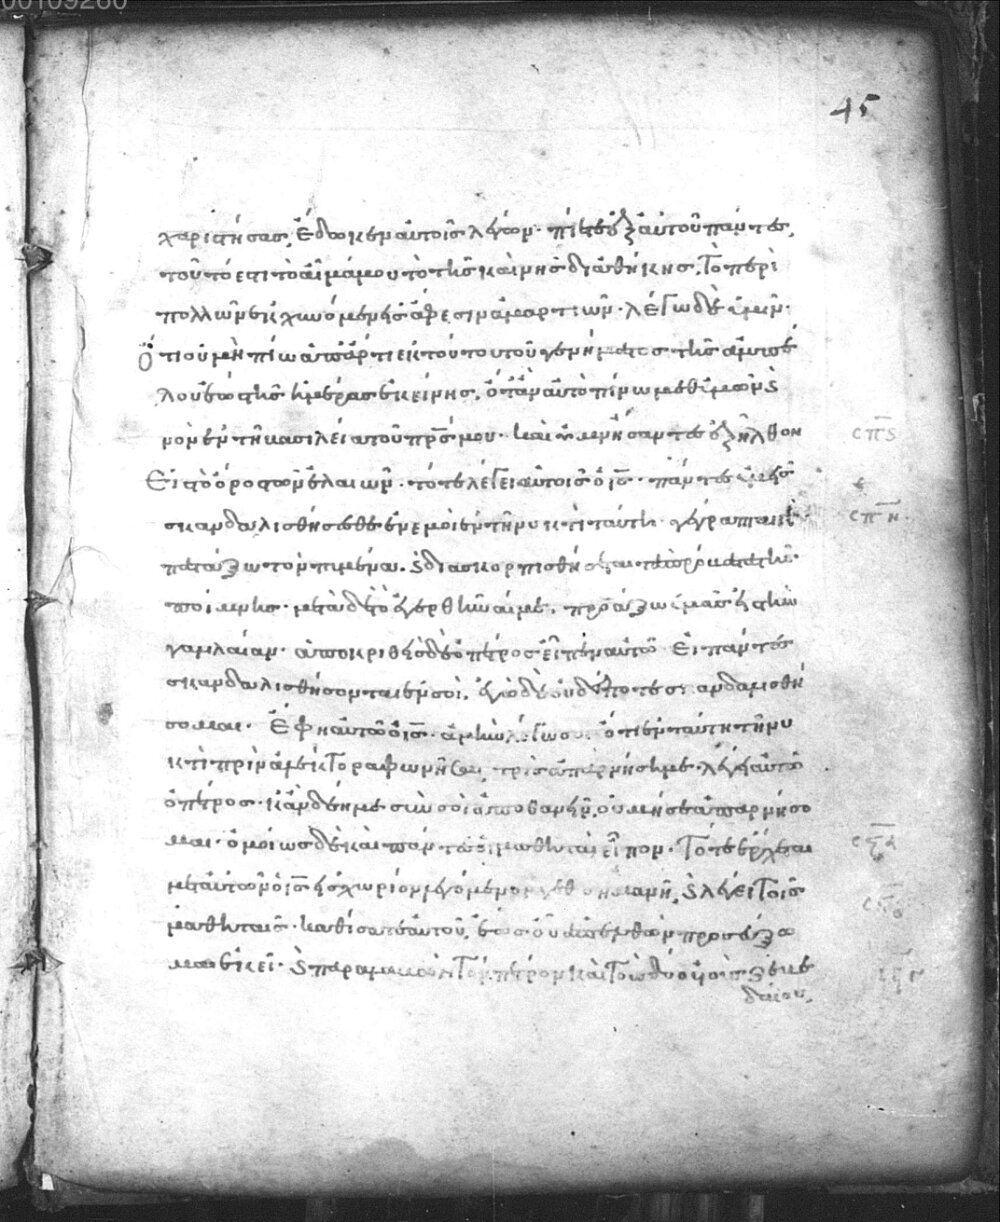 00109260
45
χαριστήσας, ἔδωκεν αὐτοῖς λέγων· πίετε ἐξ αὐτοῦ πάντες,
τοῦτό ἐστι τὸ αἷμά μου τὸ τῆς καινῆς διαθήκης, Τὸ περὶ
πολλῶν ἐκχυνόμενον εἰς ἄφεσιν ἁμαρτιῶν· λέγω δὲ ὑμῖν·
ὅτι οὐ μὴ πίω ἀπάρτι ἐκ τούτου τοῦ γενήματος τῆς ἀμπέ
λου ἕως τῆς ἡμέρας ἐκείνης, ὅταν αὐτὸ πίνω μεθ ὑμῶν
νὸν ἐν τῇ βασιλεία τοῦ πρς μου· καὶ ὑμνήσαντες ἐξῆλθον
Εἰς τὸ ὄρος τῶν ἐλαιῶν· τότε λέγει αὐτοῖς ὁ ις· πάντες ὑμεῖς
σκανδαλισθήσεσθε ἐν ἐμοὶ ἐν τῆ νυκτὶ ταύτη· γέγραπται
πατάξω τὸν πιμένα. διασκορπισθήσεται τὰ πρόβατα τῆς
ποίμνης· μετὰ δὲ τὸ ἐγερθῆναί με, προάξω ὑμᾶς εἰς τὴν
γαλιλαίαν· ἀποκριθεὶς δὲ ὁ πέτρος εἶπεν αὐτῶ Εἰ πάντες
σκανδαλισθήσονται ἐν σοὶ, ἐγὼ δὲ οὐδέποτε σκανδαλισθή
σομαι· Ἔφη αὐτῶ ὁ ις· ἀμὴν λέγω σοι ὅτι ἐν ταύτη τῆ νυ
κτὶ πρὶν ἀλέκτορα φωνῆσαι, τρὶς ἀπαρνήση με· λέγει αὐτῶ
ὁ πέτρος· κἂν δέη με σὺν σοὶ ἀποθανεῖν, οὐ μή σε ἀπαρνήσο
μαι· ὁμοίως δὲ καὶ πάντες οἱ μαθηταὶ εἶπον· Τότε ἔρχεται
μετ αὐτῶν ὁ ις εἰς χωρίον λεγόμενον γεθσημανῆ, λέγει Τοῖς
μαθηταῖς· καθίσατε αὐτοῦ, ἕως οὗ ἀπελθὼν προσεύξω
μαι ἐκεῖ· παραλαβὼν Τὸν πέτρον καὶ Τοὺς δύο υἱοὺς ζεβε
δαίου,
σπς
σπη